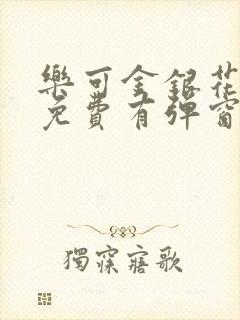 樂可金銀花
免費有彈窗
獨寐寤歌